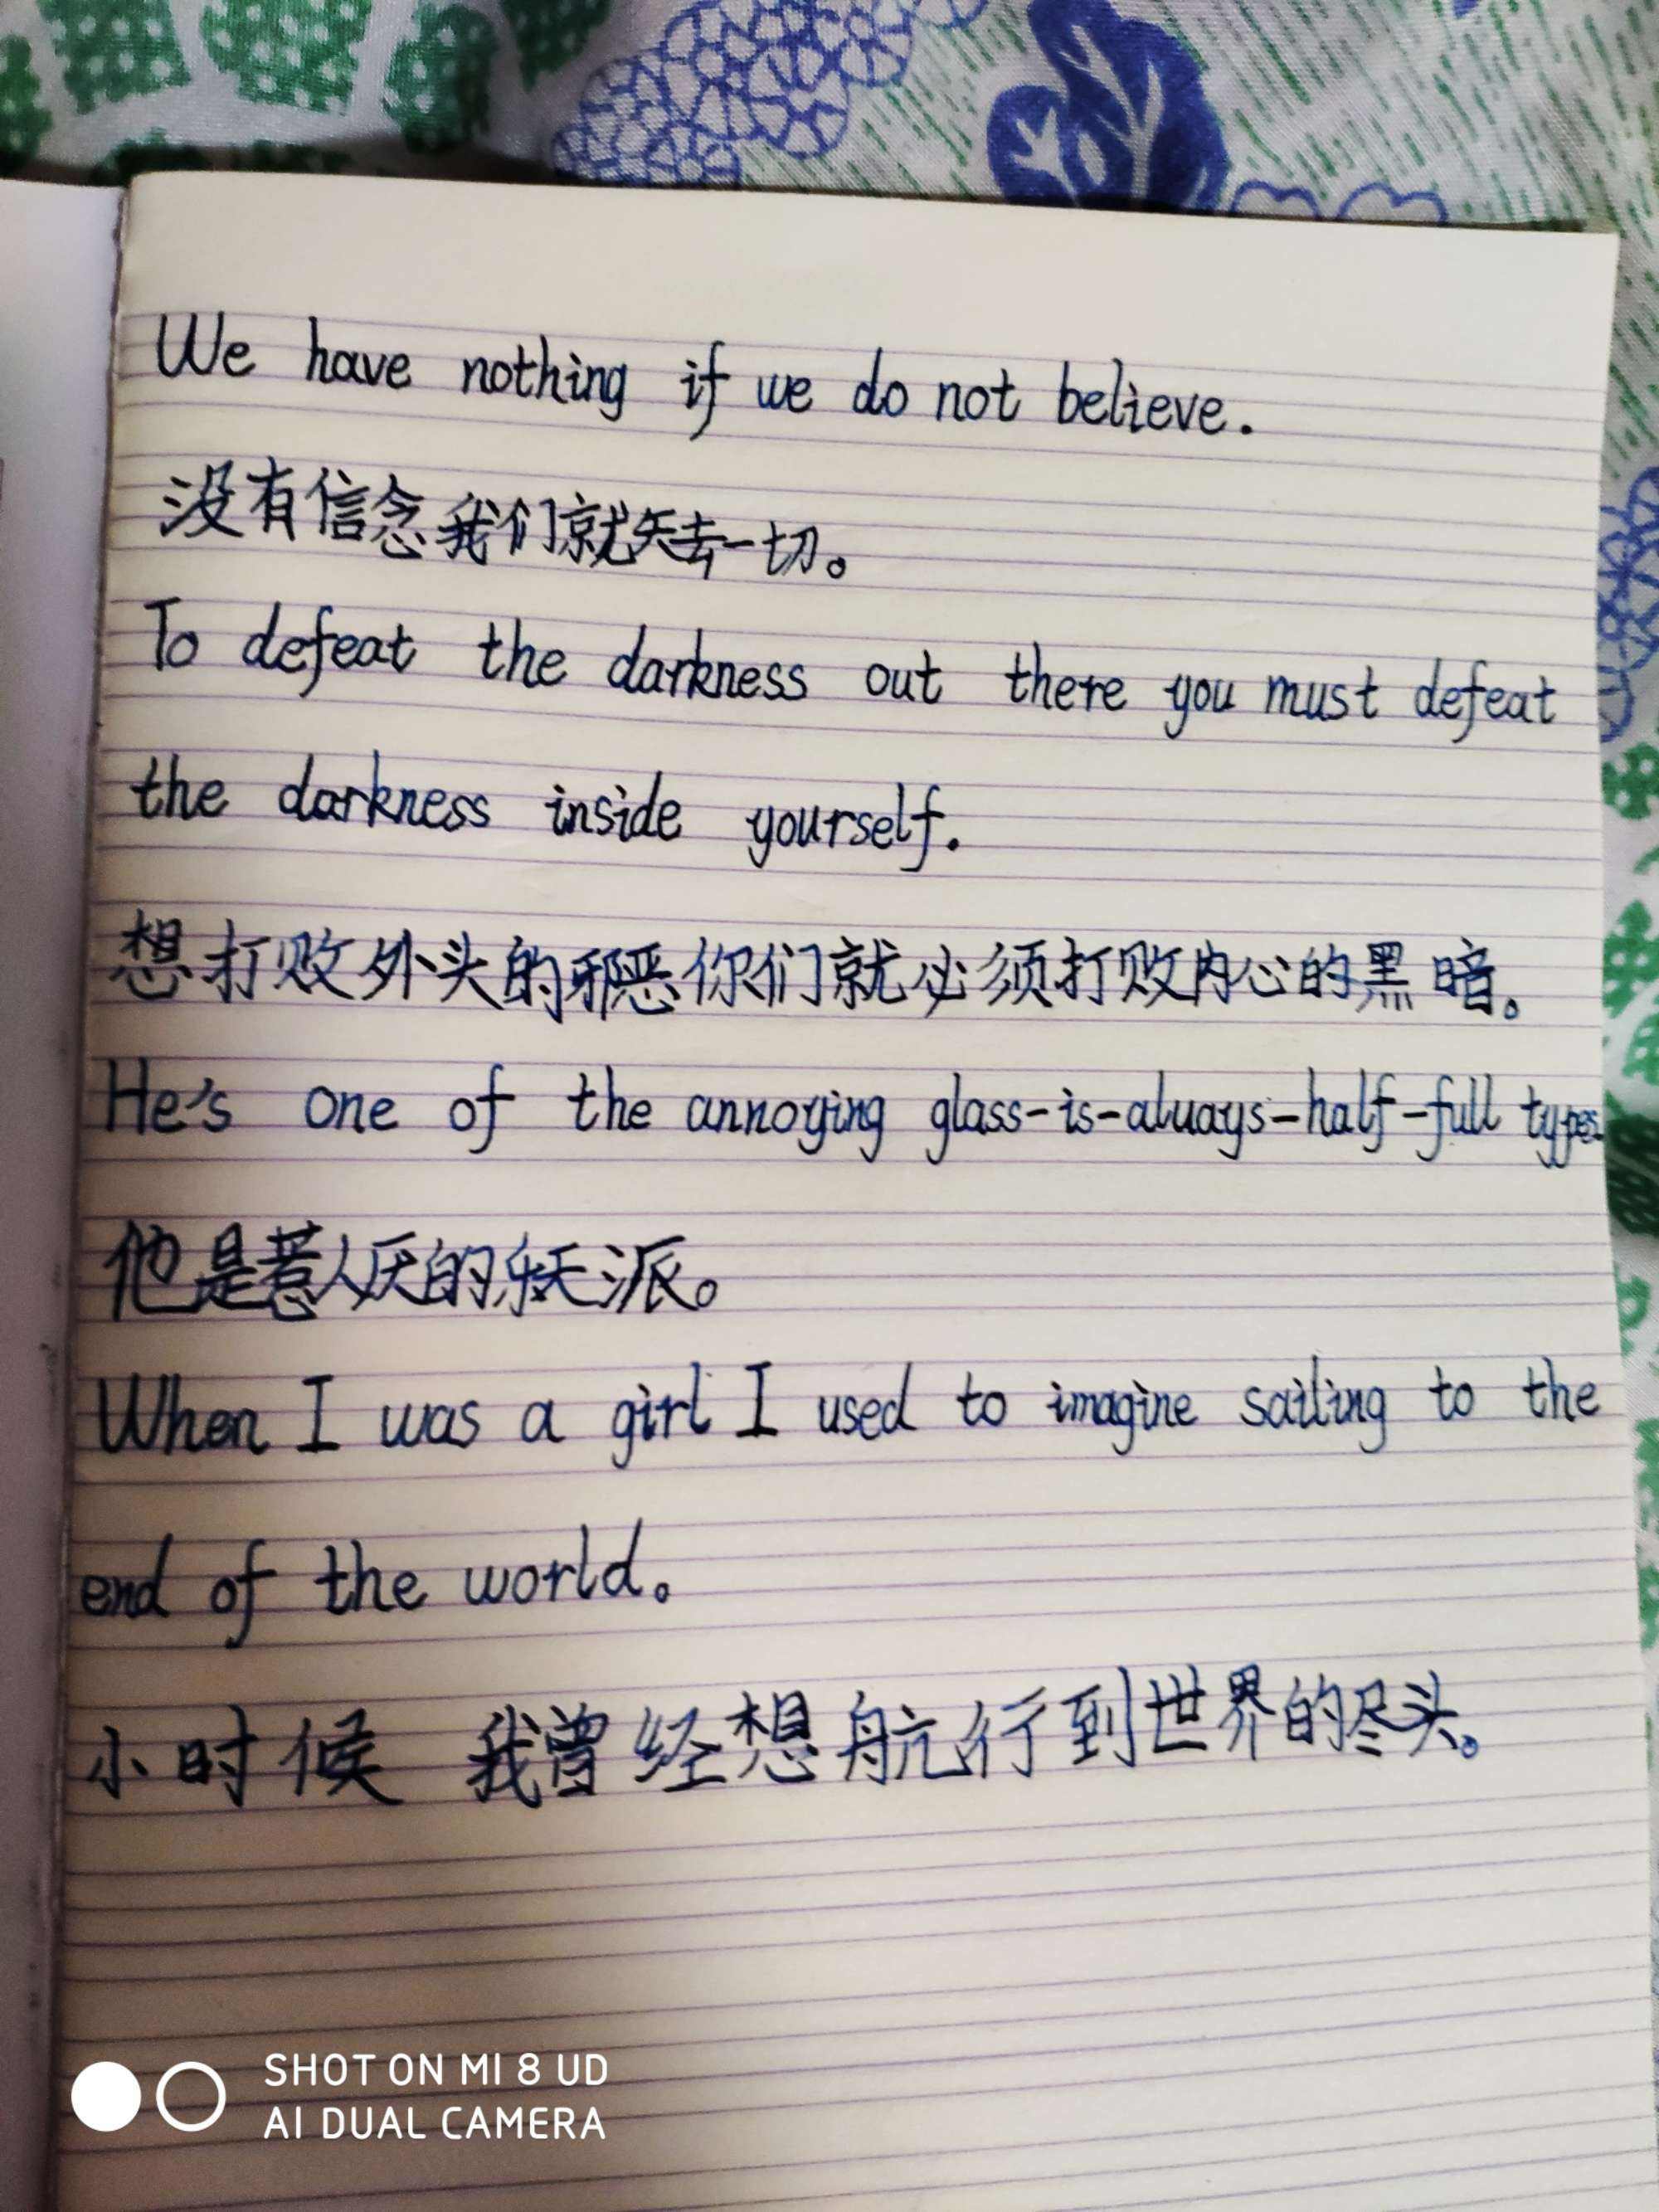 We have nothing if we do not believe.
没有信念我们就失去一切。
To defeat the darkness out there you must defeat
the darkness inside yourself.
想打败外头的邪恶你们就必须打败内心的黑暗。
He's one of the annoying glass-is-always-half-full types.
他是惹人厌的乐天派。
When I was a girl I used to imagine sailing to the
end of the world。
小时候 我曾经想航行到世界的尽头。
SHOT ON MI 8 UD
AI DUAL CAMERA